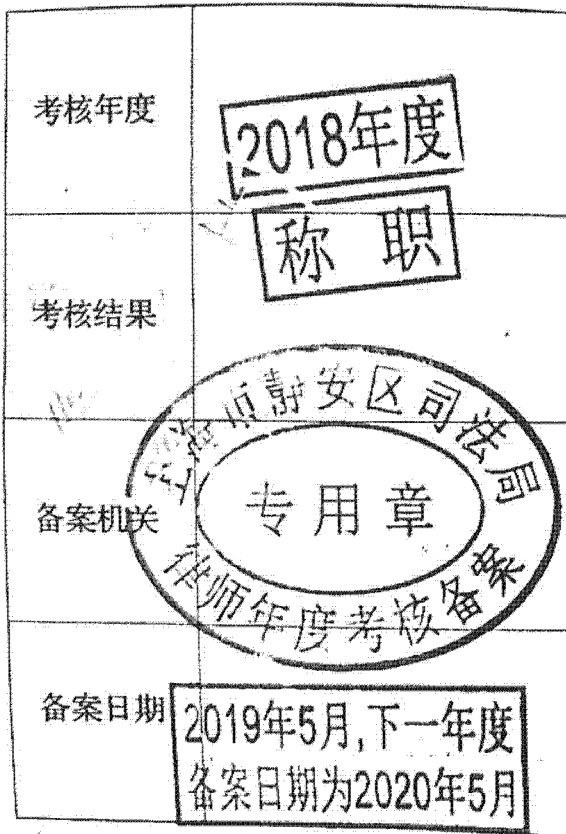 考核年度
2018年度
称 职
考核结果
上海市静安区司法局
备案机关
专用章
律师年度考核备案
备案日期
2019年5月,下一年度
备案日期为2020年5月